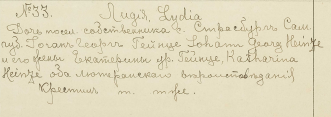 №33. Лидія, Lydia
Дочь посел. собственника с. Страсбургъ Сам.
Іоганъ Георгъ Гейнце Johann Georg Heinze
и его жены Екатерины ур. Гейнце, Katharina
Heinze оба лютеранскаго вѣроисповѣданія
Крестит. т. же.